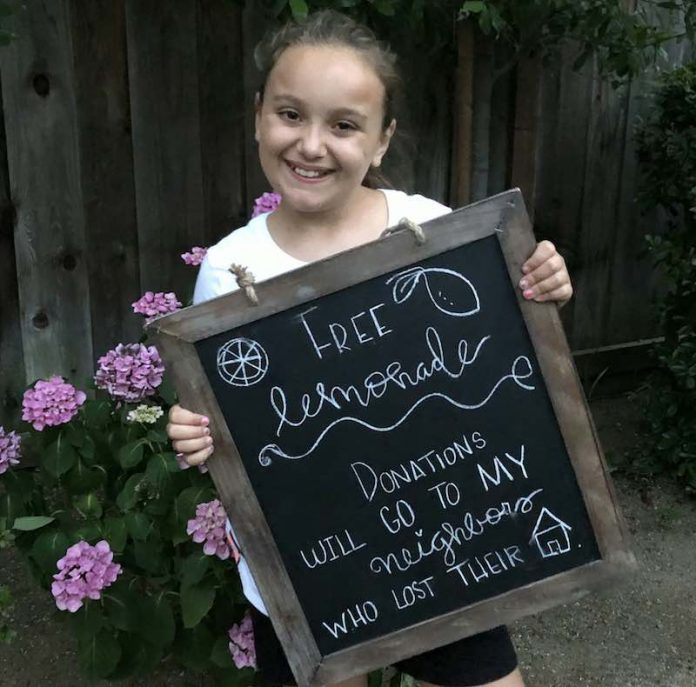 FREE
lemonade
DONATIONS
WILL GO TO MY
neighbors
WHO LOST THEIR